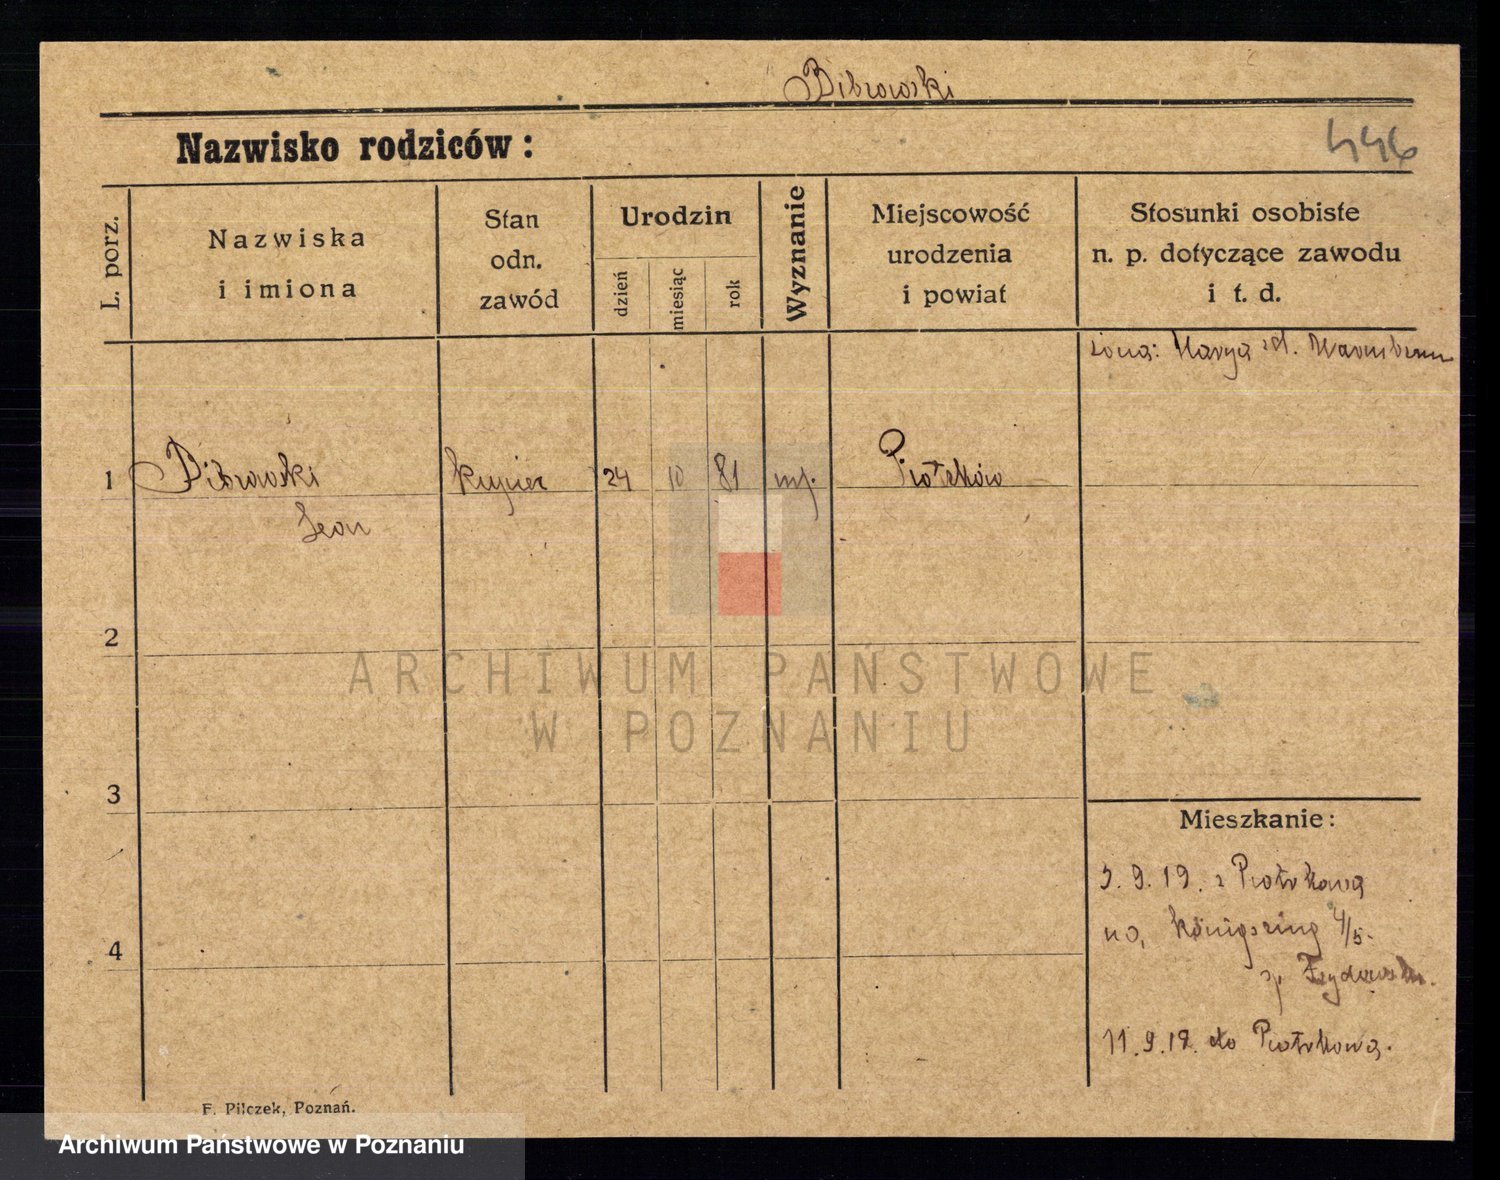 Bibrowski
Nazwisko rodziców:
446
L. porz.
Nazwiska
i imiona
Stan
odn.
zawód
Urodzin
dzień
miesiąc
rok
Wyznanie
Miejscowość
urodzenia
i powiat
Stosunki osobiste
n. p. dotyczące zawodu
i t. d.
żona: Marya
1 Bibrowski kupiec 24 10 81 mj. Piotrków
Leon
2
ARCHIWUM PAŃSTWOWE
W POZNANIU
3
Mieszkanie:
9.19. z Piotrkowa
na, Königsring 4/5.
4
11.9.19. do Piotrkowa.
F. Pilczek, Poznań.
Archiwum Państwowe w Poznaniu